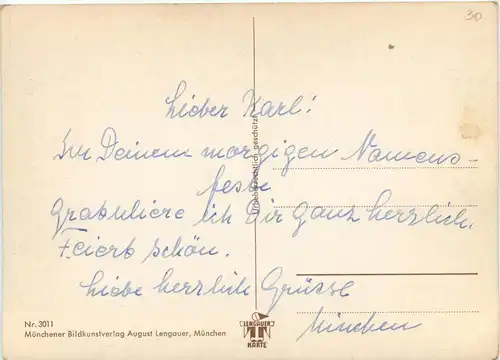 30
Lieber Karl!
Zu Deinem morgigen Namens-
feste
gratuliere ich Dir ganz herzlich.
Feiert schön.
Liebe herzlich Grüsse
Urheberrechtlich geschützt
Nr. 3011
Münchener Bildkunstverlag August Lengauer, München
LENGAUER
KARTE